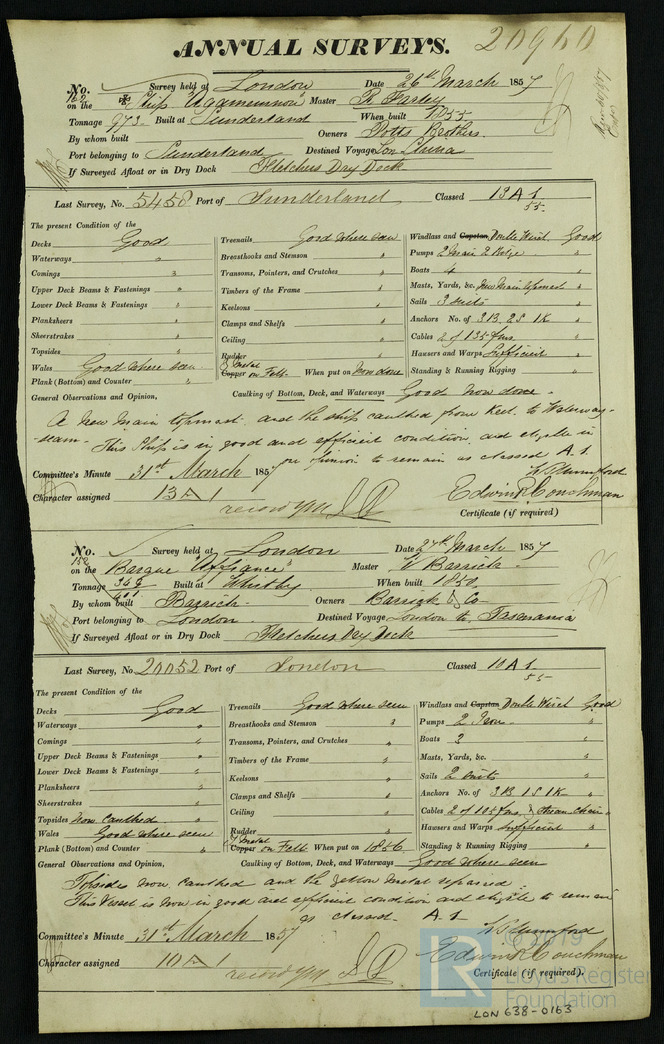 20960
ANNUAL SURVEYS.
No. 162 Survey held at London Date 26th March 1857
on the Ship "Agamemnon" Master R Farley
Tonnage 973 Built at Sunderland When built 1855
By whom built Owners Potts Brothers.
Port belonging to Sunderland Destined Voyage Lon China
If Surveyed Afloat or in Dry Dock Fletchers Dry Dock
Last Survey, No. 5458 Port of Sunderland Classed 13 A 1
55.
The present Condition of the
Decks Good
Waterways "
Comings "
Upper Deck Beams & Fastenings "
Lower Deck Beams & Fastenings "
Planksheers "
Sheerstrakes "
Topsides "
Wales Good where seen
Plank (Bottom) and Counter "
Treenails Good where seen
Breasthooks and Stemson "
Transoms, Pointers, and Crutches "
Timbers of the Frame "
Keelsons "
Clamps and Shelfs "
Ceiling "
Rudder "
Y Metal
Copper on Felt When put on Now done
Windlass and Capstan Double Winch Good
Pumps 2 Main 2 Bilge "
Boats 4 "
Masts, Yards, &c. New Main Topmast "
Sails 3 Suits "
Anchors No. of 3 B. 2 S 1 K "
Cables 2 of 135 fms. "
Hawsers and Warps Sufficient "
Standing & Running Rigging "
General Observations and Opinion, Caulking of Bottom, Deck, and Waterways Good Now done.
A New Main topmast and the ship caulked from keel to Waterway-
seam. This Ship is in good and efficient condition, and eligible in
our opinion to remain as classed A.1
Committee's Minute 31st March 1857
Character assigned 13 A 1
Edwin R Couchman
Certificate (if required)
No. 158 Survey held at London Date 27th March 1857
on the Barque "Affiance" Master W Barrick
Tonnage Built at Whitby When built 1850
By whom built Barrick Owners Barrick & Co
Port belonging to London Destined Voyage London to Tasmania
If Surveyed Afloat or in Dry Dock Fletchers Dry Dock
Last Survey, No. 20052 Port of London Classed 10 A 1
55
The present Condition of the
Decks Good
Waterways "
Comings "
Upper Deck Beams & Fastenings "
Lower Deck Beams & Fastenings "
Planksheers "
Sheerstrakes "
Topsides Now Caulked "
Wales Good where seen
Plank (Bottom) and Counter "
Treenails Good where seen
Breasthooks and Stemson "
Transoms, Pointers, and Crutches "
Timbers of the Frame "
Keelsons "
Clamps and Shelfs "
Ceiling "
Rudder "
Y Metal
Copper on Felt When put on 1856
Windlass and Capstan Double Winch Good
Pumps 2 Iron "
Boats 3 "
Masts, Yards, &c. "
Sails 2 Suits "
Anchors No. of 3 B 1 S 1 K "
Cables 2 of 105 fms. & Stream Chain "
Hawsers and Warps Sufficient "
Standing & Running Rigging "
General Observations and Opinion, Caulking of Bottom, Deck, and Waterways Good where seen
Topsides now caulked and the yellow metal repaired.
This Vessel is now in good and efficient condition and eligible to remain
as classed. A.1
Committee's Minute 31st March 1857
Character assigned 10 A 1
Edwin R Couchman
Certificate (if required).
© 2019
Lloyd's Register
Foundation
LR
LON 638-0163